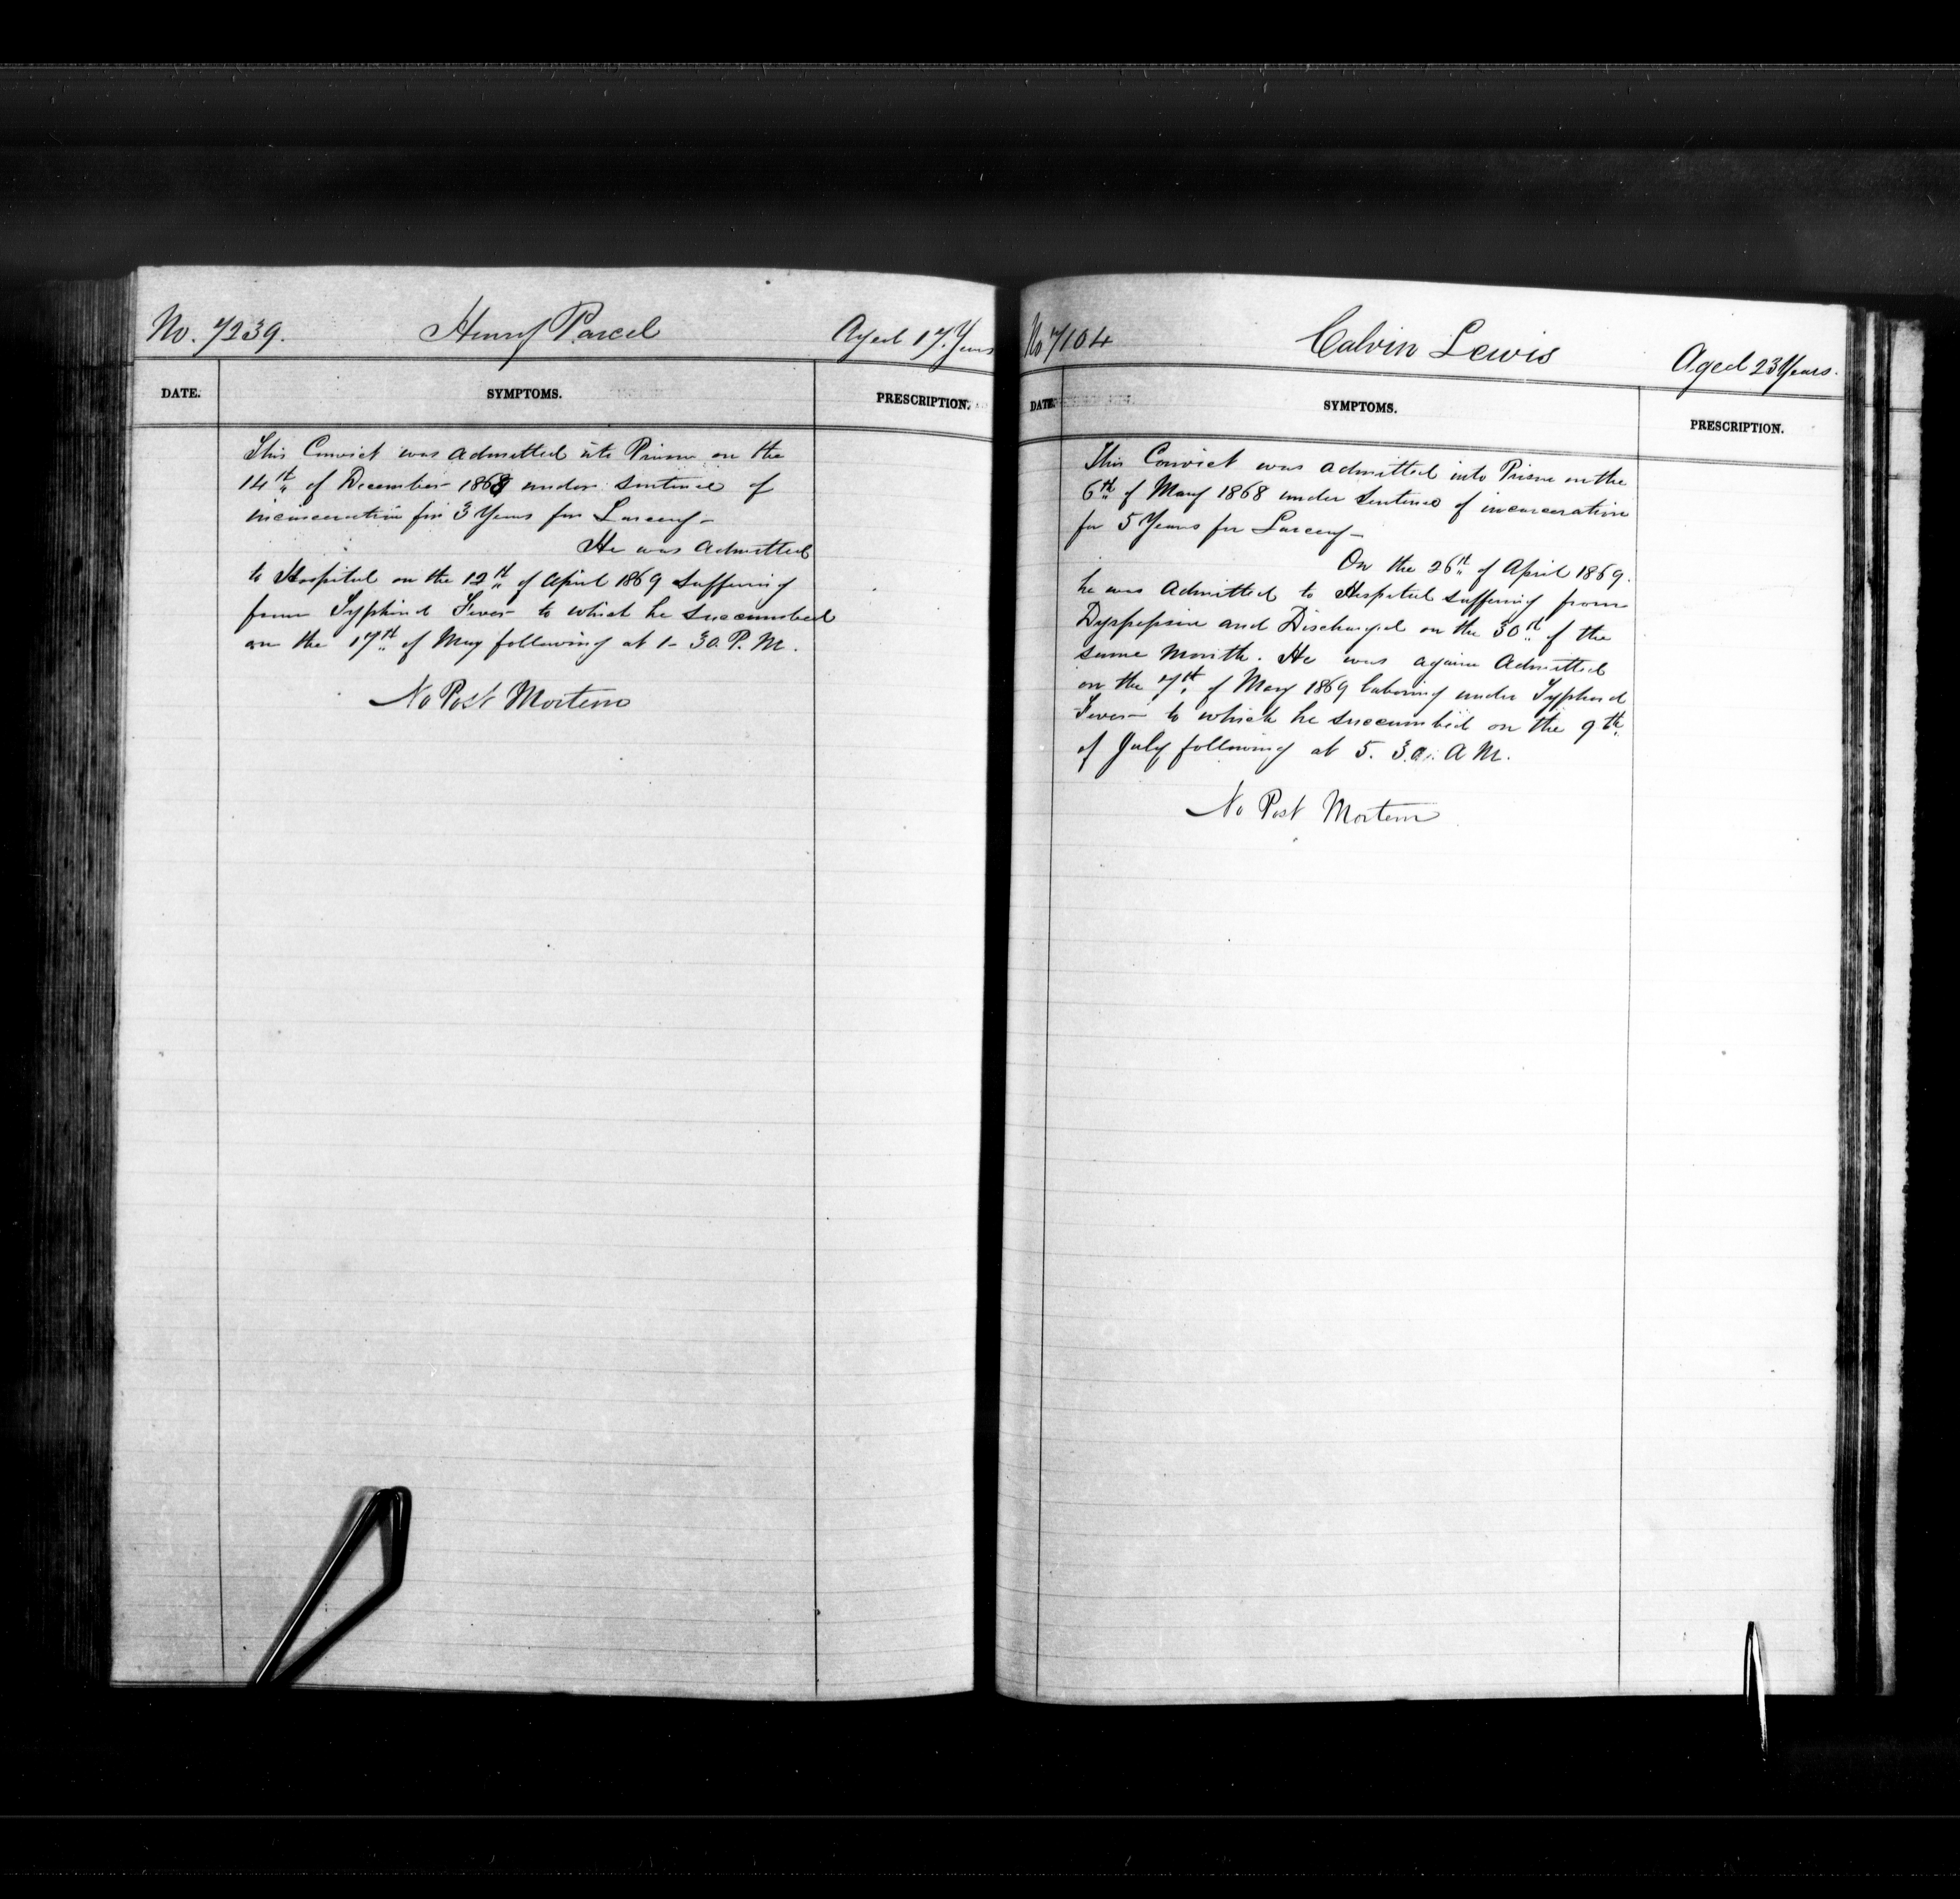 No. 7239. Henry Parcel Aged 17. Years
DATE. SYMPTOMS. PRESCRIPTION.
This Convict was Admitted into Prison on the
14th of December 1868 under sentence of
incarceration for 3 Years for Larceny–
He was Admitted
to Hospital on the 12th of April 1869 suffering
from Typhoid Fever to which he succumbed
on the 17th of May following at 1–30. P. M.
No Post Mortem
No 7104 Calvin Lewis Aged 23 Years.
DATE. SYMPTOMS. PRESCRIPTION.
This Convict was Admitted into Prison on the
6th of May 1868 under Sentence of incarceration
for 5 Years for Larceny–
On the 26th of April 1869.
he was Admitted to Hospital suffering from
Dyspepsia and Discharged on the 30th of the
same Month. He was again Admitted
on the 7th of May 1869 laboring under Typhoid
Fever to which he succumbed on the 9th
of July following at 5. 30. A M.
No Post Mortem